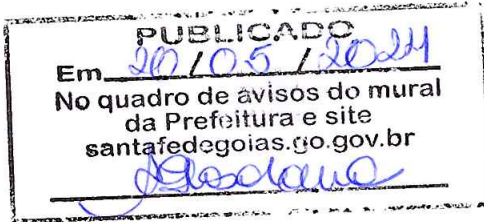 PUBLICADO
Em 20/05/2024
No quadro de avisos do mural
da Prefeitura e site
santafedegoias.go.gov.br